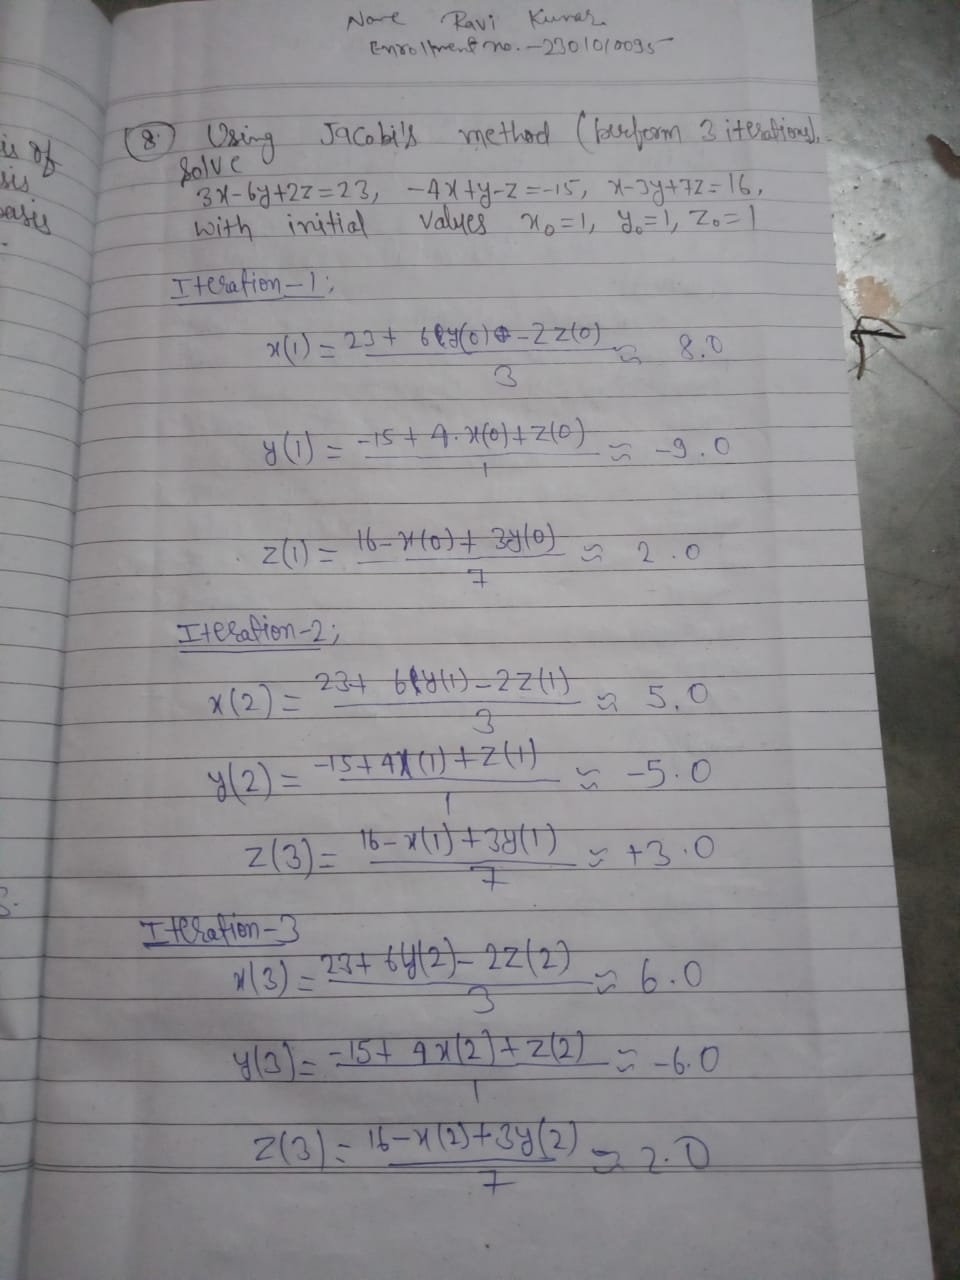 Name Ravi Kumar
Enrollment no. - 2301010035
is of
sis
basis
8. Using Jacobi's method (perform 3 iterations).
Solve
3x-6y+2z=23, -4x+y-z=-15, x-3y+7z=16,
with initial values x₀=1, y₀=1, z₀=1
Iteration-1;
x(1) = 23+ 6y(0) - 2z(0) / 3 ≈ 8.0
y(1) = -15 + 4.x(0)+z(0) / 1 ≈ -9.0
z(1) = 16-x(0)+ 3y(0) / 7 ≈ 2.0
Iteration-2;
x(2) = 23+ 6y(1)-2z(1) / 3 ≈ 5.0
y(2) = -15+4x(1)+z(1) / 1 ≈ -5.0
z(3) = 16-x(1)+3y(1) / 7 ≈ +3.0
Iteration-3
x(3) = 23+ 6y(2)- 2z(2) / 3 ≈ 6.0
y(3) = -15+ 4x(2)+z(2) / 1 ≈ -6.0
z(3) = 16-x(2)+3y(2) / 7 ≈ 2.0